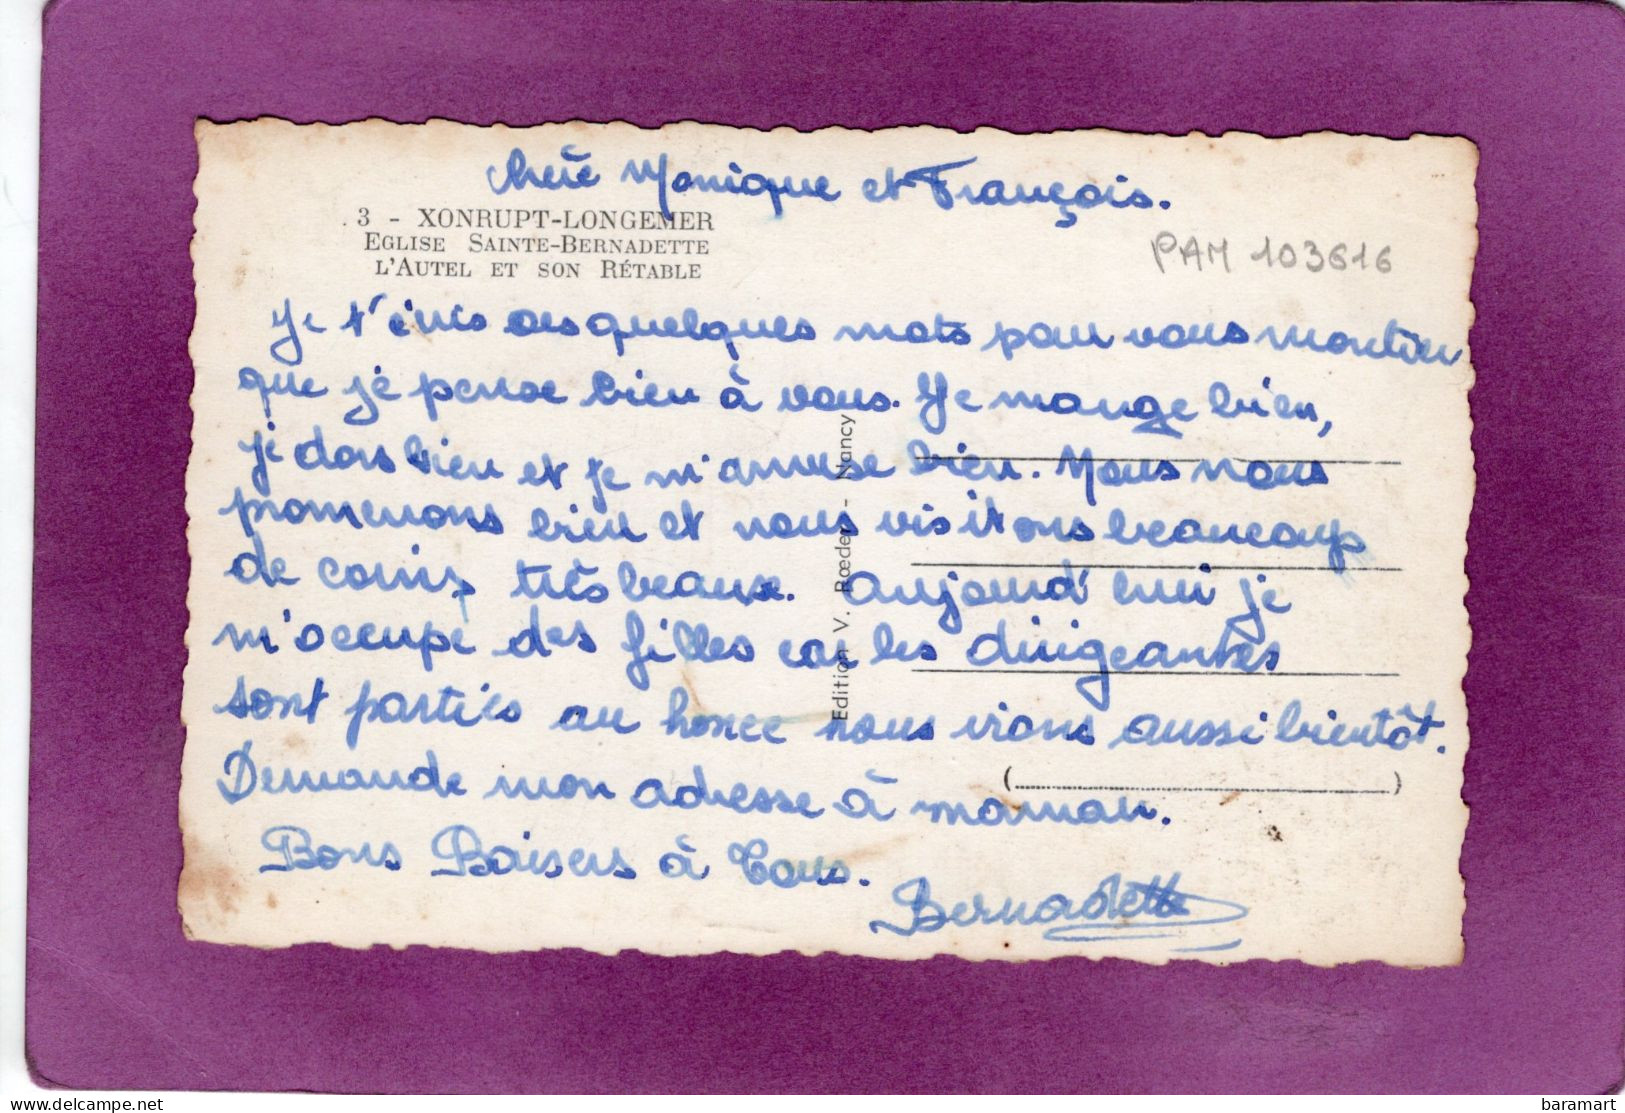 Chère Monique et François.
3 - XONRUPT-LONGEMER
EGLISE SAINTE-BERNADETTE
L'AUTEL ET SON RÉTABLE
PAM 103616
Je t'écris ces quelques mots pour vous montrer
que je pense bien à vous. Je mange bien,
je dors bien et je m'amuse bien. Nous nous
promenons bien et nous visitons beaucoup
de coins très beaux. Aujourd'hui je
m'occupe des filles car les dirigeantes
sont parties au nous irons aussi bientôt.
Demande mon adresse à maman.
Bons Baisers à Tous.
Bernadette
Edition V. Rœder - Nancy
(........)
delcampe.net
baramart